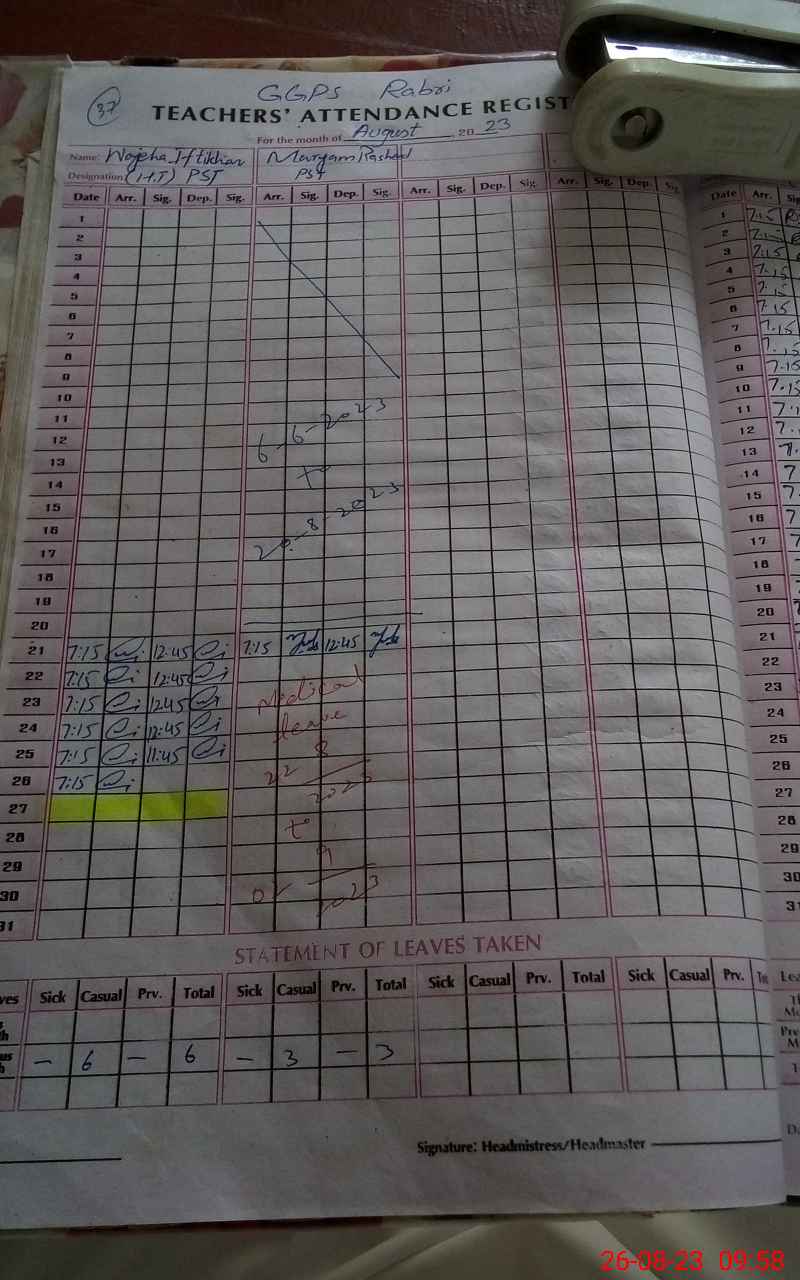 37
GGPS Rabri
TEACHERS' ATTENDANCE REGIST
For the month of August, 20 23
Name: Wajeha Iftikhar Maryam Rasheed
Designation (H.T) PST PST
Date Arr. Sig. Dep. Sig. Arr. Sig. Dep. Sig. Arr. Sig. Dep. Sig. Arr. Sig. Dep. Sig.
1
2
3
4
5
6
7
8
9
10
11
12 6-6-2023
13
14 to
15
16
17 20-8-2023
18
19
20
21 7:15 12:45 7:15 12:45
22 7:15 12:45
23 7:15 12:45 Medical
24 7:15 12:45 leave
25 7:15 11:45 22 8
26 7:15 2023
27
28 to
29 9
30 2023
31
STATEMENT OF LEAVES TAKEN
ves Sick Casual Prv. Total Sick Casual Prv. Total Sick Casual Prv. Total Sick Casual Prv.
– 6 – 6 – 3 – 3
Signature: Headmistress/Headmaster
Date Arr.
1 7.15
2 7.15
3 7.15
4 7.15
5 7.15
6 7.15
7 7.15
8 7.15
9 7.15
10 7.15
11 7.1
12 7.
13 7.
14 7
15 7.
16 7
17 7
18
19
20
21
22
23
24
25
26
27
28
29
30
31
26-08-23 09:58